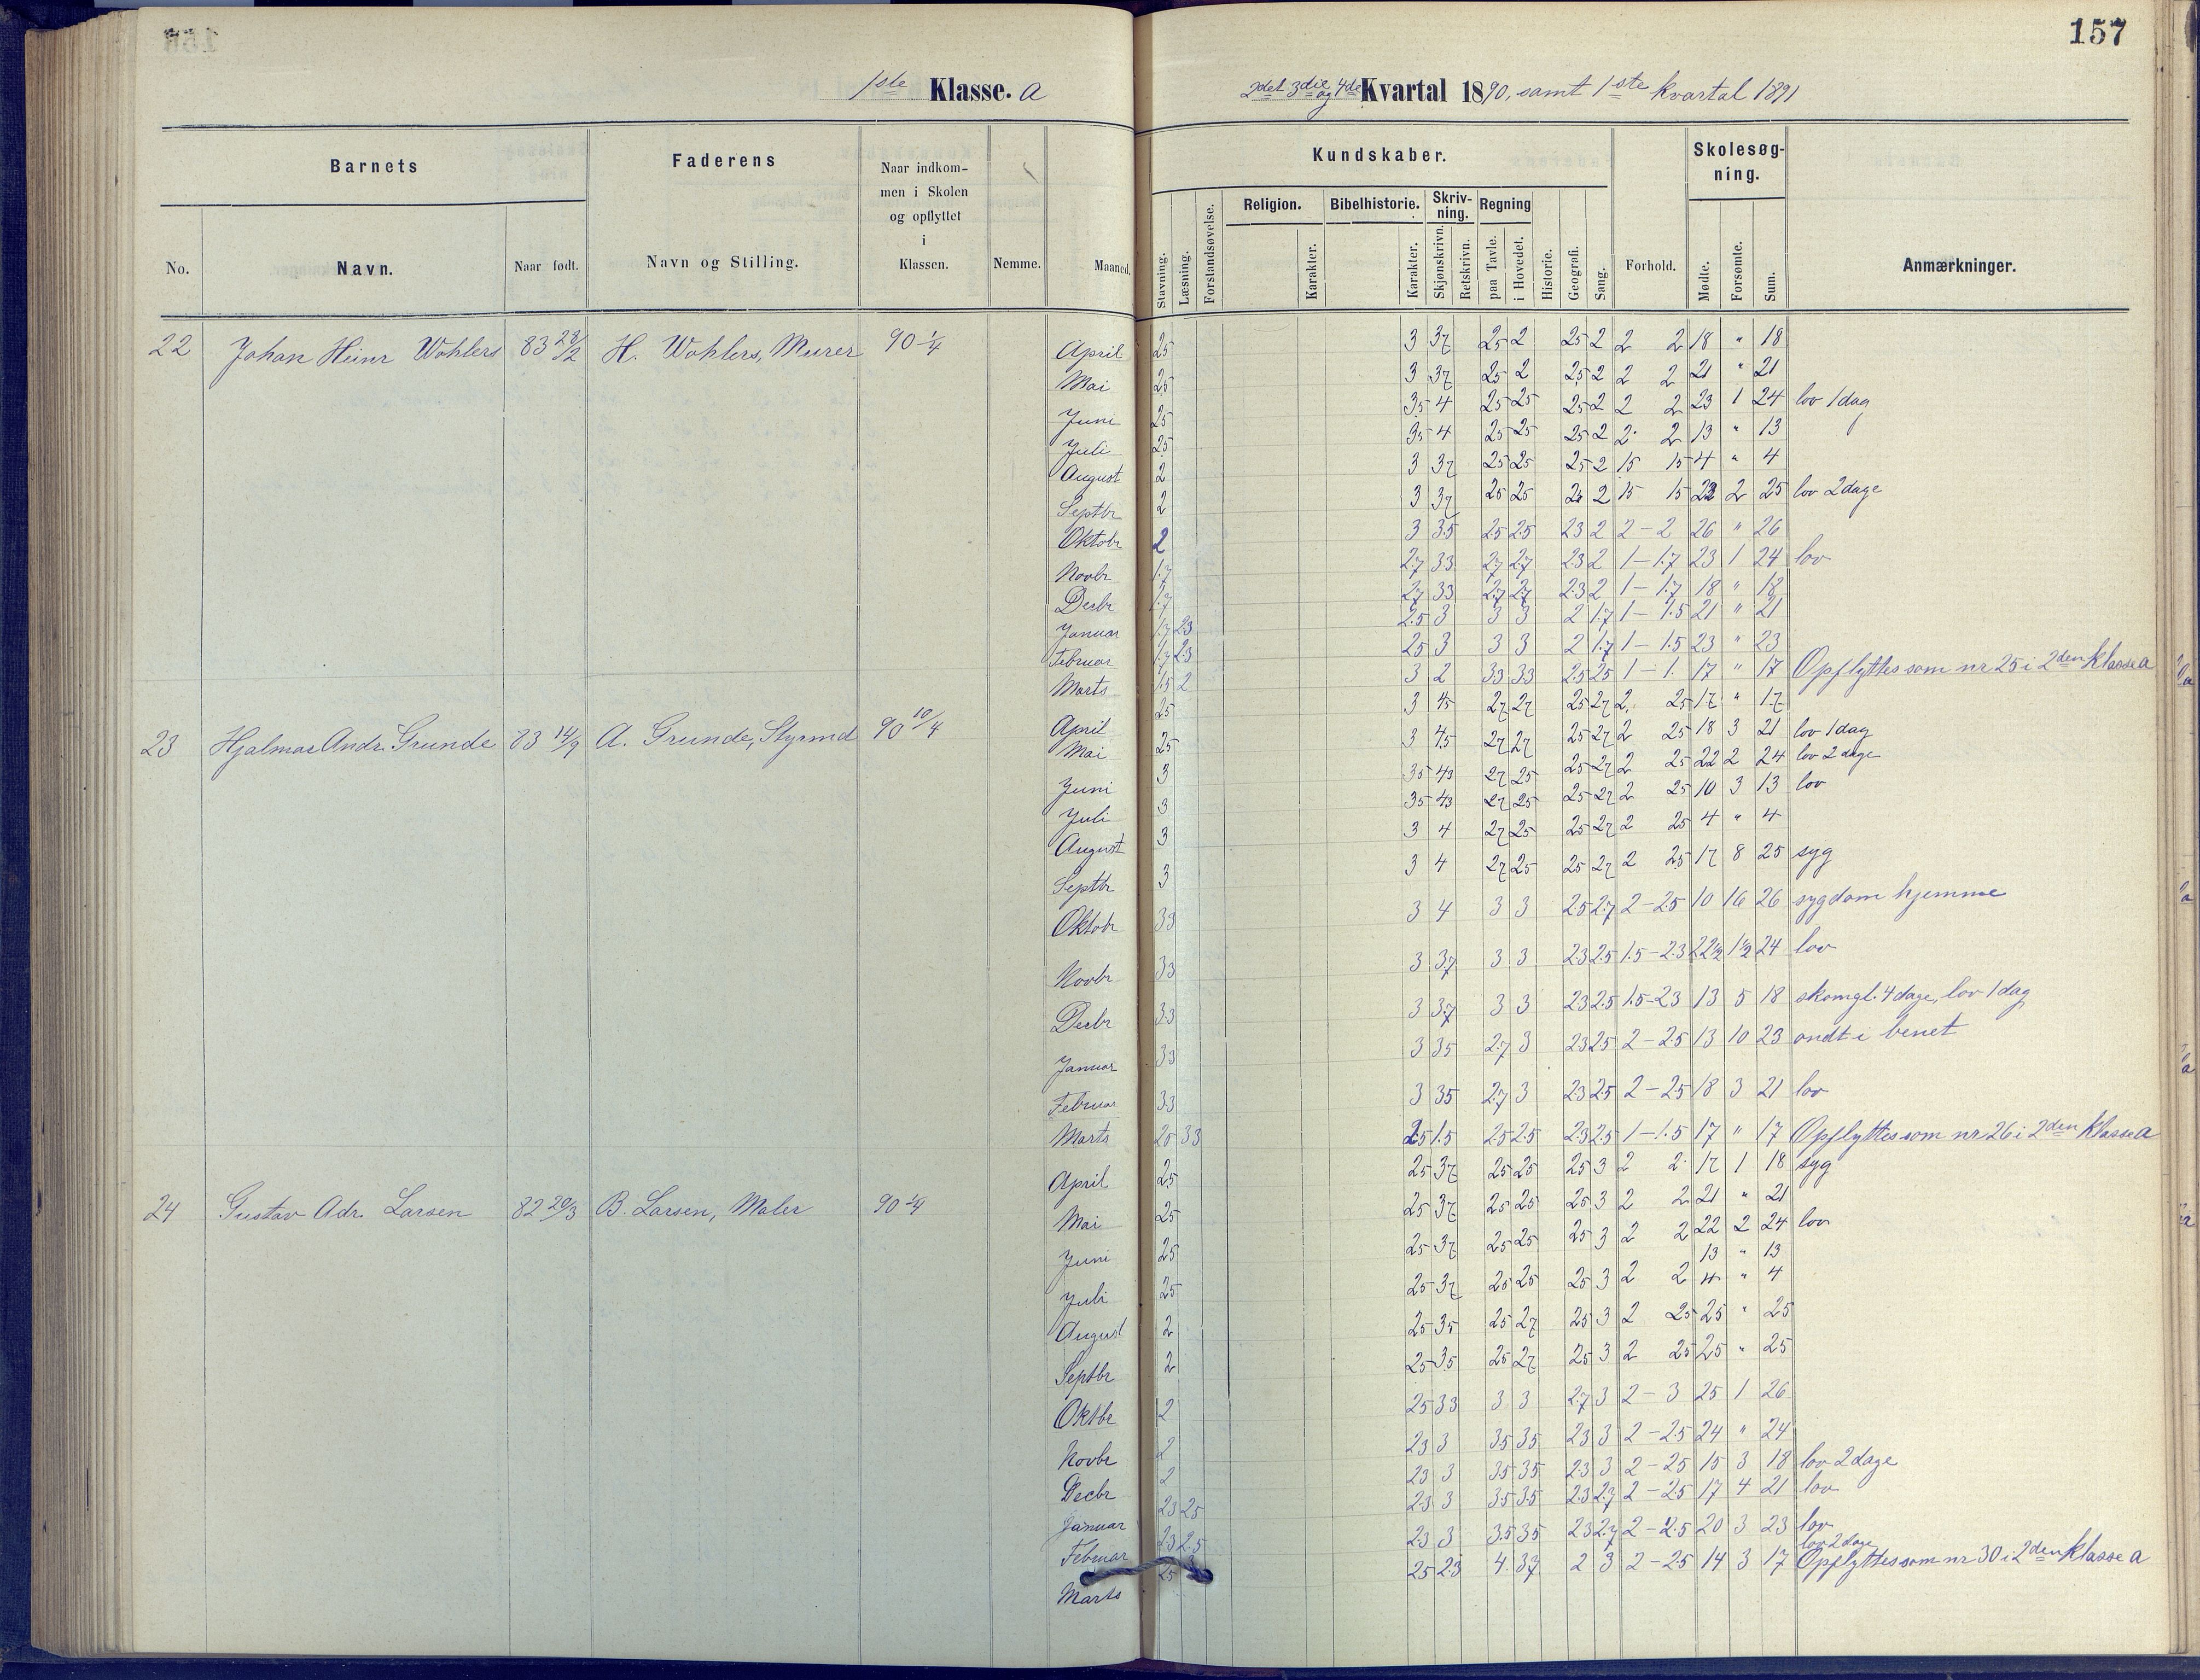 157
1ste Klasse. a
2det 3die og 4de Kvartal 1890, samt 1ste kvartal 1891
Barnets
Faderens
Naar indkom-
men i Skolen
og opflyttet
i
Klassen.
Nemme.
Maaned.
No.
Navn.
Naar født.
Navn og Stilling.
Kundskaber.
Skolesøg-
ning.
Stavning.
Læsning.
Forstandsøvelse.
Religion.
Karakter.
Bibelhistorie.
Karakter.
Skriv-
ning.
Skjønskrivn.
Retskrivn.
Regning
paa Tavle.
i Hovedet.
Historie.
Geografi.
Sang.
Forhold.
Mødte.
Forsømte.
Sum.
Anmærkninger.
22 Johan Heinr Wohlers 83 28/2 H. Wohlers, Murer 90 1/4
April 25 3 37 25 2 25 2 2 2 18 " 18
Mai 25 3 37 25 2 25 2 2 2 21 " 21
Juni 25 35 4 25 25 25 2 2 2 23 1 24 lov 1 dag
Juli 25 35 4 25 25 25 2 2 2 13 " 13
August 2 3 37 25 25 25 2 15 15 4 " 4
Septbr 2 3 37 25 25 2 15 15 2 25 lov 2 dage
Oktobr 2 3 3.5 25 2.5 23 2 2 - 2 26 " 26
Novbr 1.7 2.7 33 2.7 2.7 2.3 2 1 - 1.7 23 1 24 lov
Desbr 1.7 2.7 33 2.7 2.7 2.3 2 1 - 1.7 18 " 18
Januar 1.7 2.3 2.5 3 3 3 2 1.7 1 - 1.5 21 " 21
Februar 1.7 2.3 25 3 3 3 2 1.7 1 - 1.5 23 " 23
Marts 1.5 2 3 2 33 33 2.5 25 1 - 1. 17 " 17 Opflyttes som nr 25 i 2den Klasse a
23 Hjalmar Andr. Grunde 83 14/9 A. Grunde, Styrmd 90 10/4
April 25 3 45 27 27 25 27 2 25 17 " 17
Mai 25 3 45 27 27 25 27 2 25 18 3 21 lov 1 dag
Juni 3 35 43 27 25 25 27 2 25 22 2 24 lov 2 dage
Juli 3 35 43 27 25 25 27 2 25 10 3 13 lov
August 3 3 4 27 25 25 27 2 25 4 " 4
Septbr 3 3 4 27 25 25 27 2 25 17 8 25 syg
Oktobr 33 3 4 3 3 2.5 2.7 2 - 2.5 10 16 26 sygdom hjemme
Novbr 33 3 3.7 3 3 23 2.5 1.5 - 2.3 22 1/2 1 1/2 24 lov
Desbr 3.3 3 3.7 3 3 23 2.5 1.5 - 23 13 5 18 skomgl. 4 dage, lov 1 dag
Januar 33 3 35 2.7 3 23 25 2 - 2.5 13 10 23 ondt i benet
Februar 33 3 35 2.7 3 23 25 2 - 25 18 3 21 lov
Marts 25 33 25 1.5 2.5 2.5 23 2.5 1 - 1.5 17 " 17 Opflyttes som nr 26 i 2den Klasse a
24 Gustav Adr. Larsen 82 20/3 B. Larsen, Maler 90 1/4
April 25 25 37 25 25 25 3 2 2 17 1 18 syg
Mai 25 25 37 25 25 25 3 2 2 21 " 21
Juni 25 25 37 25 25 25 3 2 2 22 2 24 lov
13 " 13
Juli 25 25 37 25 25 25 3 2 2 4 " 4
August 2 25 35 25 27 25 3 2 25 25 " 25
Septbr 2 25 35 25 27 25 3 2 25 25 " 25
Oktbr 2 25 33 3 3 2.7 3 2 - 3 25 1 26
Novbr 2 23 3 35 35 23 3 2 - 2.5 24 " 24
Decbr 2 23 3 35 35 23 3 2 - 25 15 3 18 lov 2 dage
Januar 23 25 23 3 35 3.5 23 2.7 2 - 25 17 4 21 lov
Februar 23 2.5 23 3 3.5 35 23 2.7 2 - 2.5 20 3 23 lov
lov 2 dage
Marts 25 25 2.3 4. 37 2 3 2 - 25 14 3 17 Opflyttes som nr 30 i 2den Klasse a